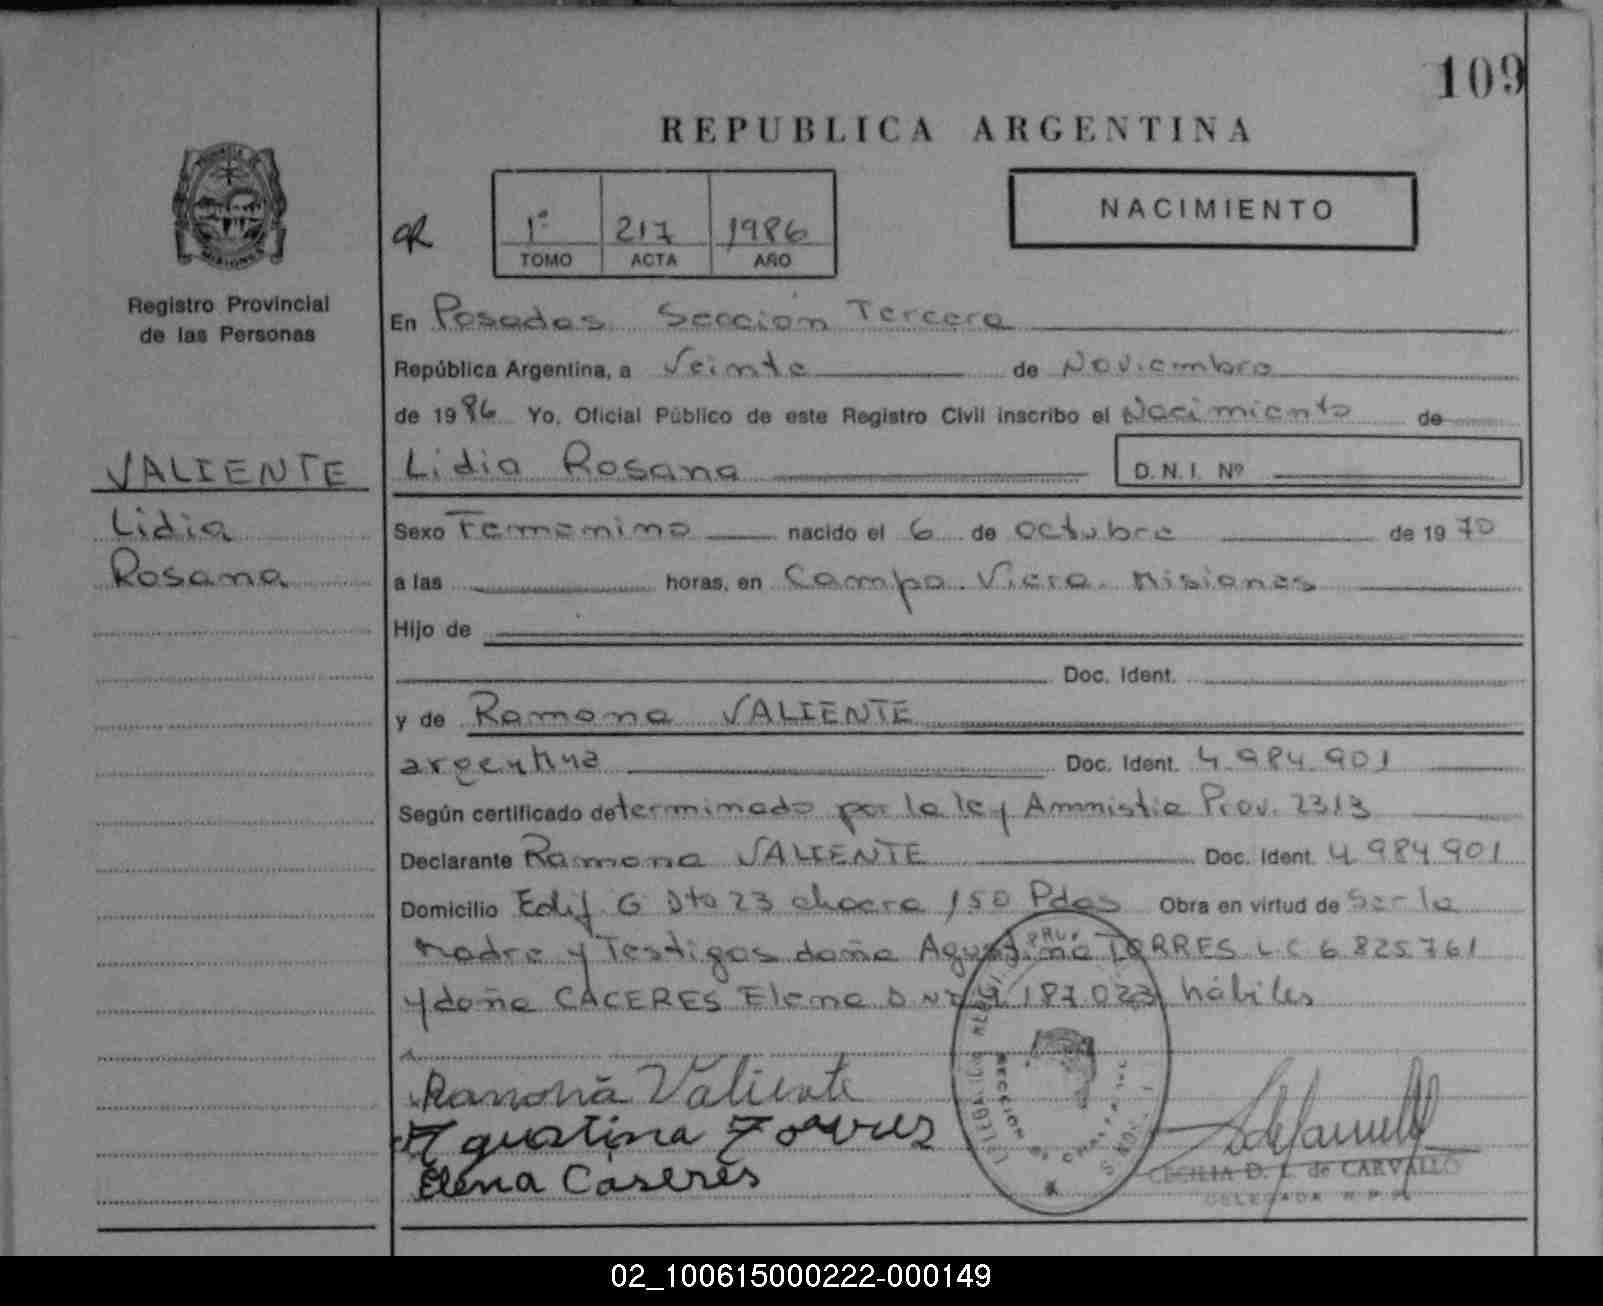 109
REPUBLICA ARGENTINA
NACIMIENTO
1º 217 1986
TOMO ACTA AÑO
Registro Provincial
de las Personas
VALIENTE
Lidia
Rosana
En Posadas Sección Tercera
República Argentina, a Veinte de Noviembre
de 1986 Yo, Oficial Público de este Registro Civil inscribo el Nacimiento de
Lidia Rosana D.N.I. Nº
Sexo Femenino nacido el 6 de octubre de 1970
a las horas, en Campo Viera. Misiones
Hijo de
Doc. Ident.
y de Ramona VALIENTE
argentina Doc. Ident. 4.984.901
Según certificado determinado por la ley Amnistia Prov. 2313
Declarante Ramona VALIENTE Doc. Ident. 4.984.901
Domicilio Edif. G Dto 23 chacra 150 Pdas Obra en virtud de Ser la
Madre y Testigos doña Agustina TORRES L C 6.825.761
y doña CACERES Elena D N I 187.023 hábiles
Ramona Valiente
Agustina Torres
Elena Caseres
SECCION
CECILIA D. L. de CARVALLO
DELEGADA R.P.P.
02_100615000222-000149